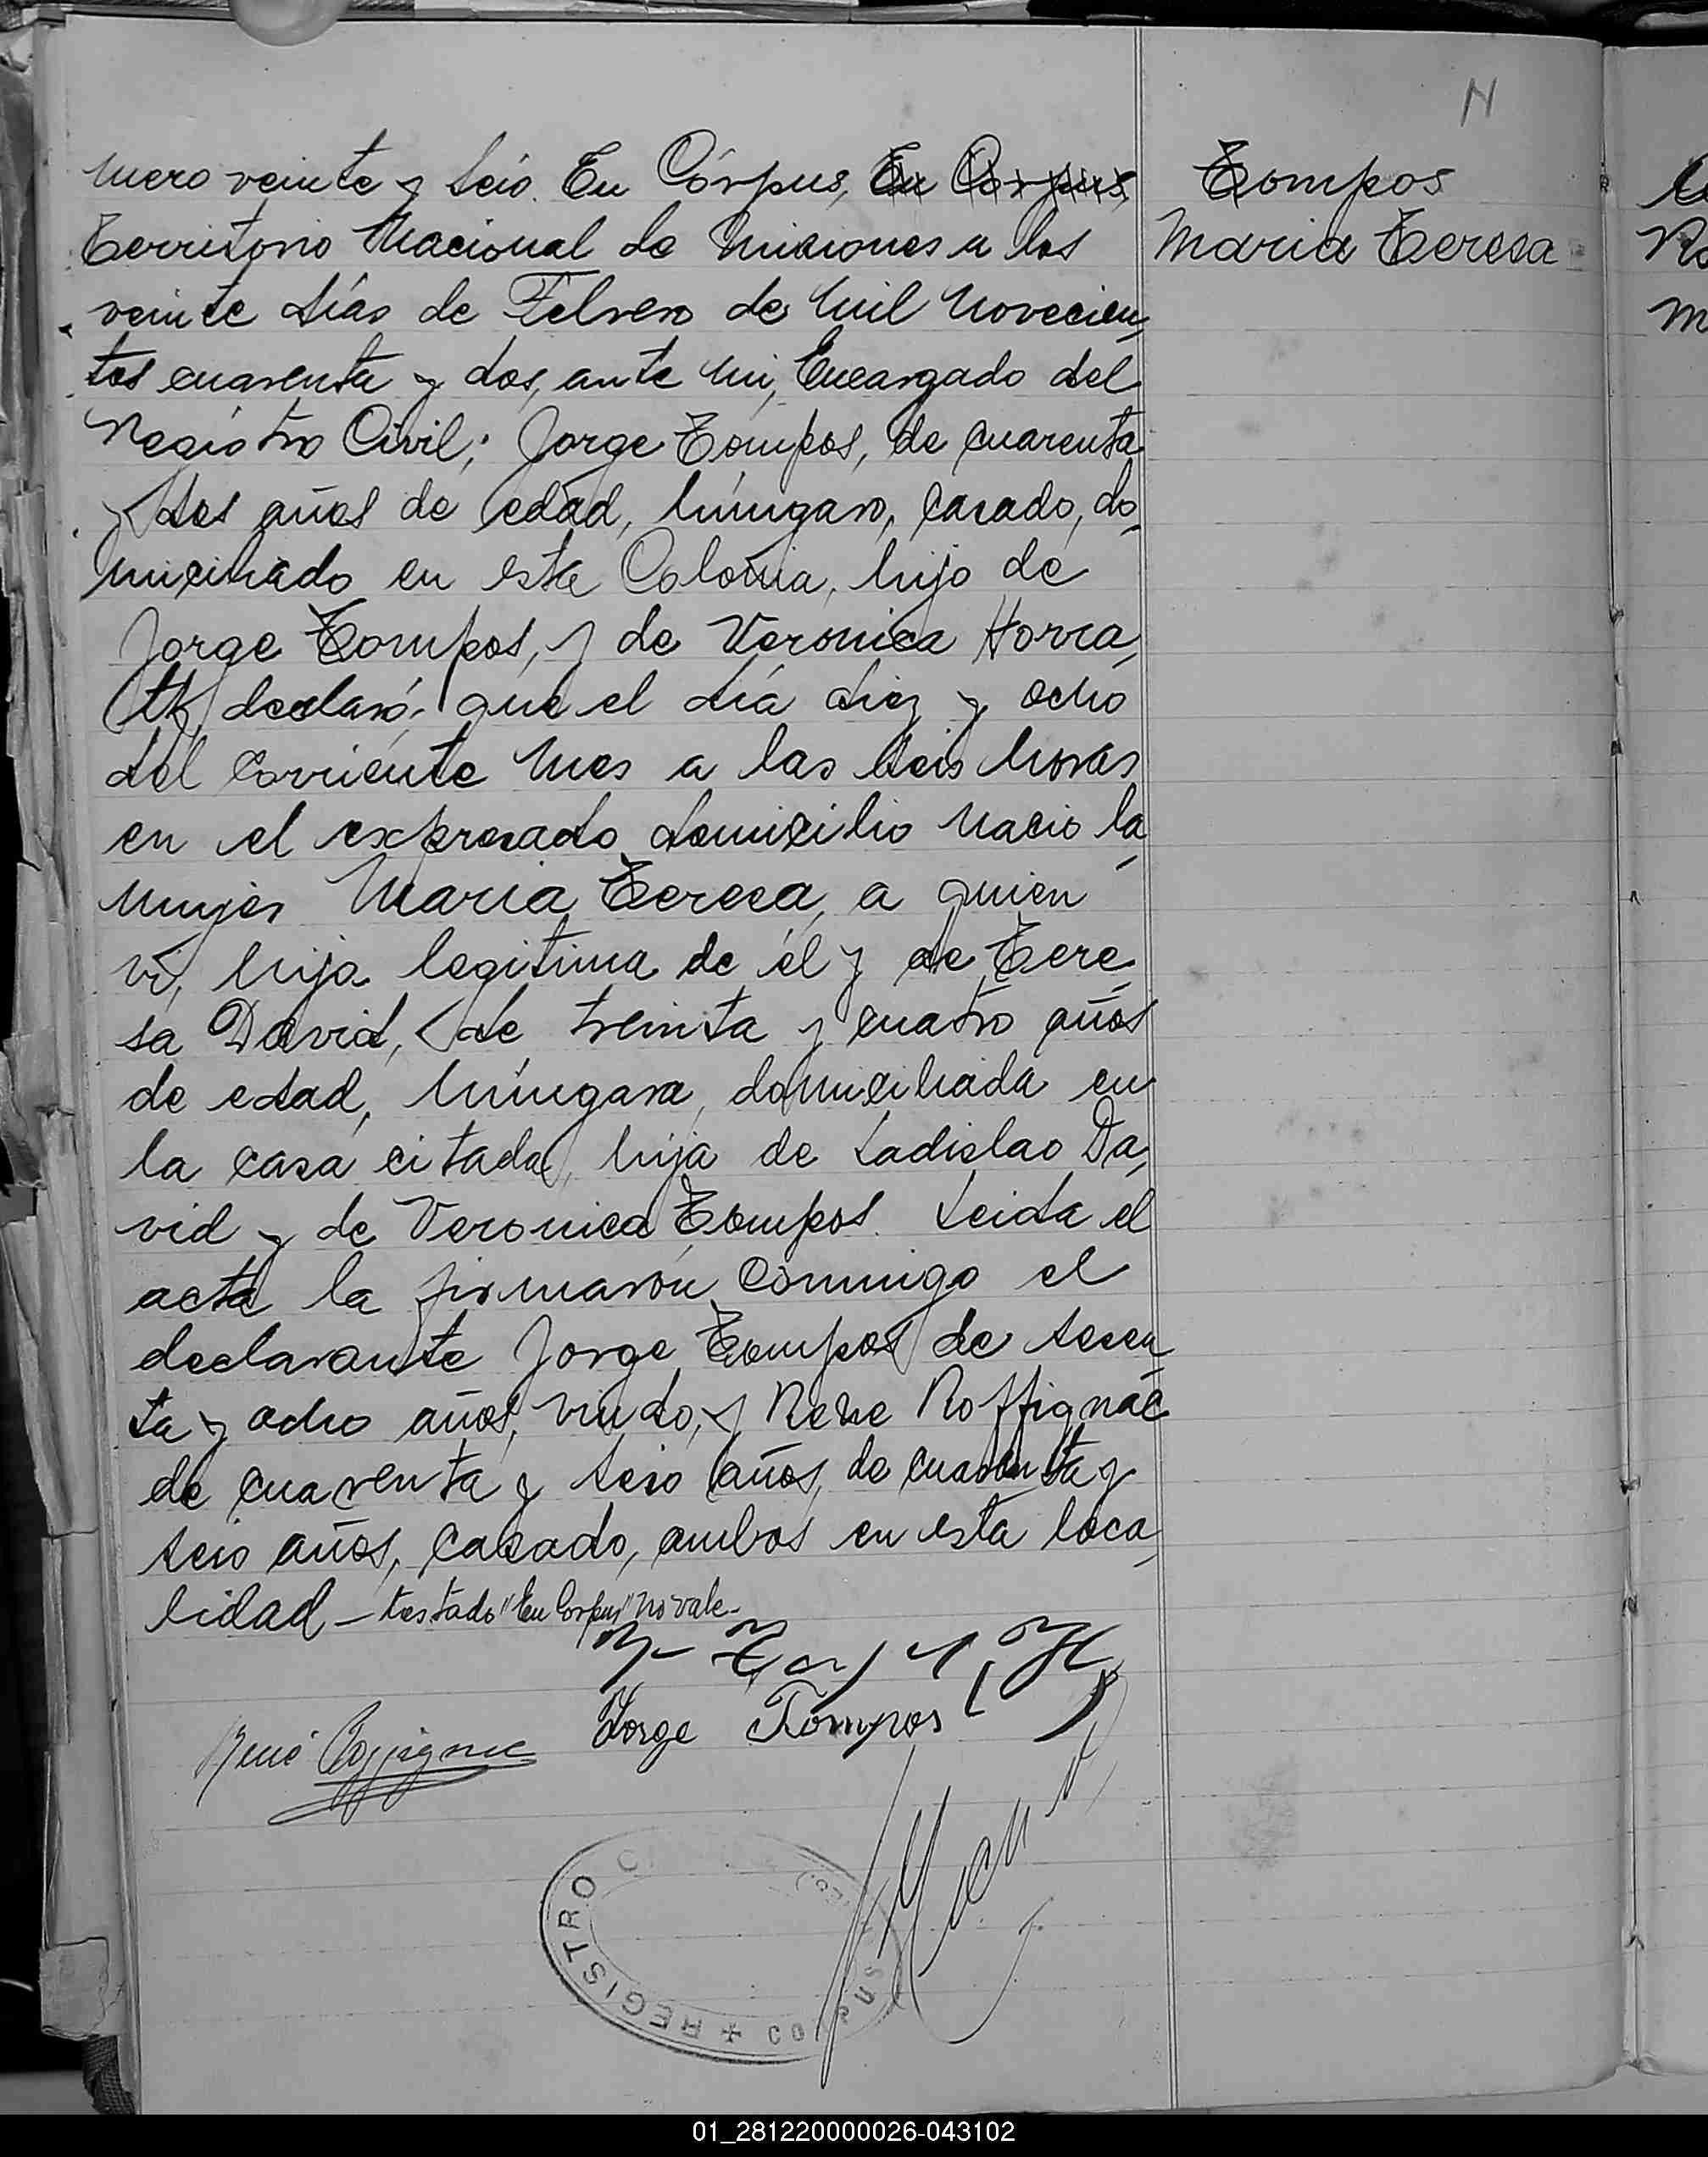 N
Tompos
Maria Teresa
mero veinte y seis. En Córpus, En Corpus
Territorio Nacional de Misiones a los
veinte días de Febrero de mil novecien,
tos cuarenta y dos, ante mi, Encargado del
Registro Civil; Jorge Tompos, de cuarenta
y dos años de edad, húngaro, casado, do,
miciliado en esta Colonia, hijo de
Jorge Tompos, y de Veronica Horva,
th, declaró; que el día diez y ocho
del corriente mes a las seis horas
en el expresado domicilio nacio la
mujer Maria Teresa, a quien
vi, hija legitima de él y de Tere,
sa David, de treinta y cuatro años
de edad, húngara, domiciliada en
la casa citada, hija de Ladislao Da,
vid y de Veronica Tompos. Leida el
acta la firmaron conmigo el
declarante Jorge Tompos de sesen
ta y ocho años, viudo, y Rene Roffignac
de cuarenta y seis años, de cuarenta y
seis años, casado, ambos en esta loca,
lidad – testado "En Corpus" no vale-
Jorge Tompos
René Roffignac
REGISTRO
CORPUS
01_281220000026-043102